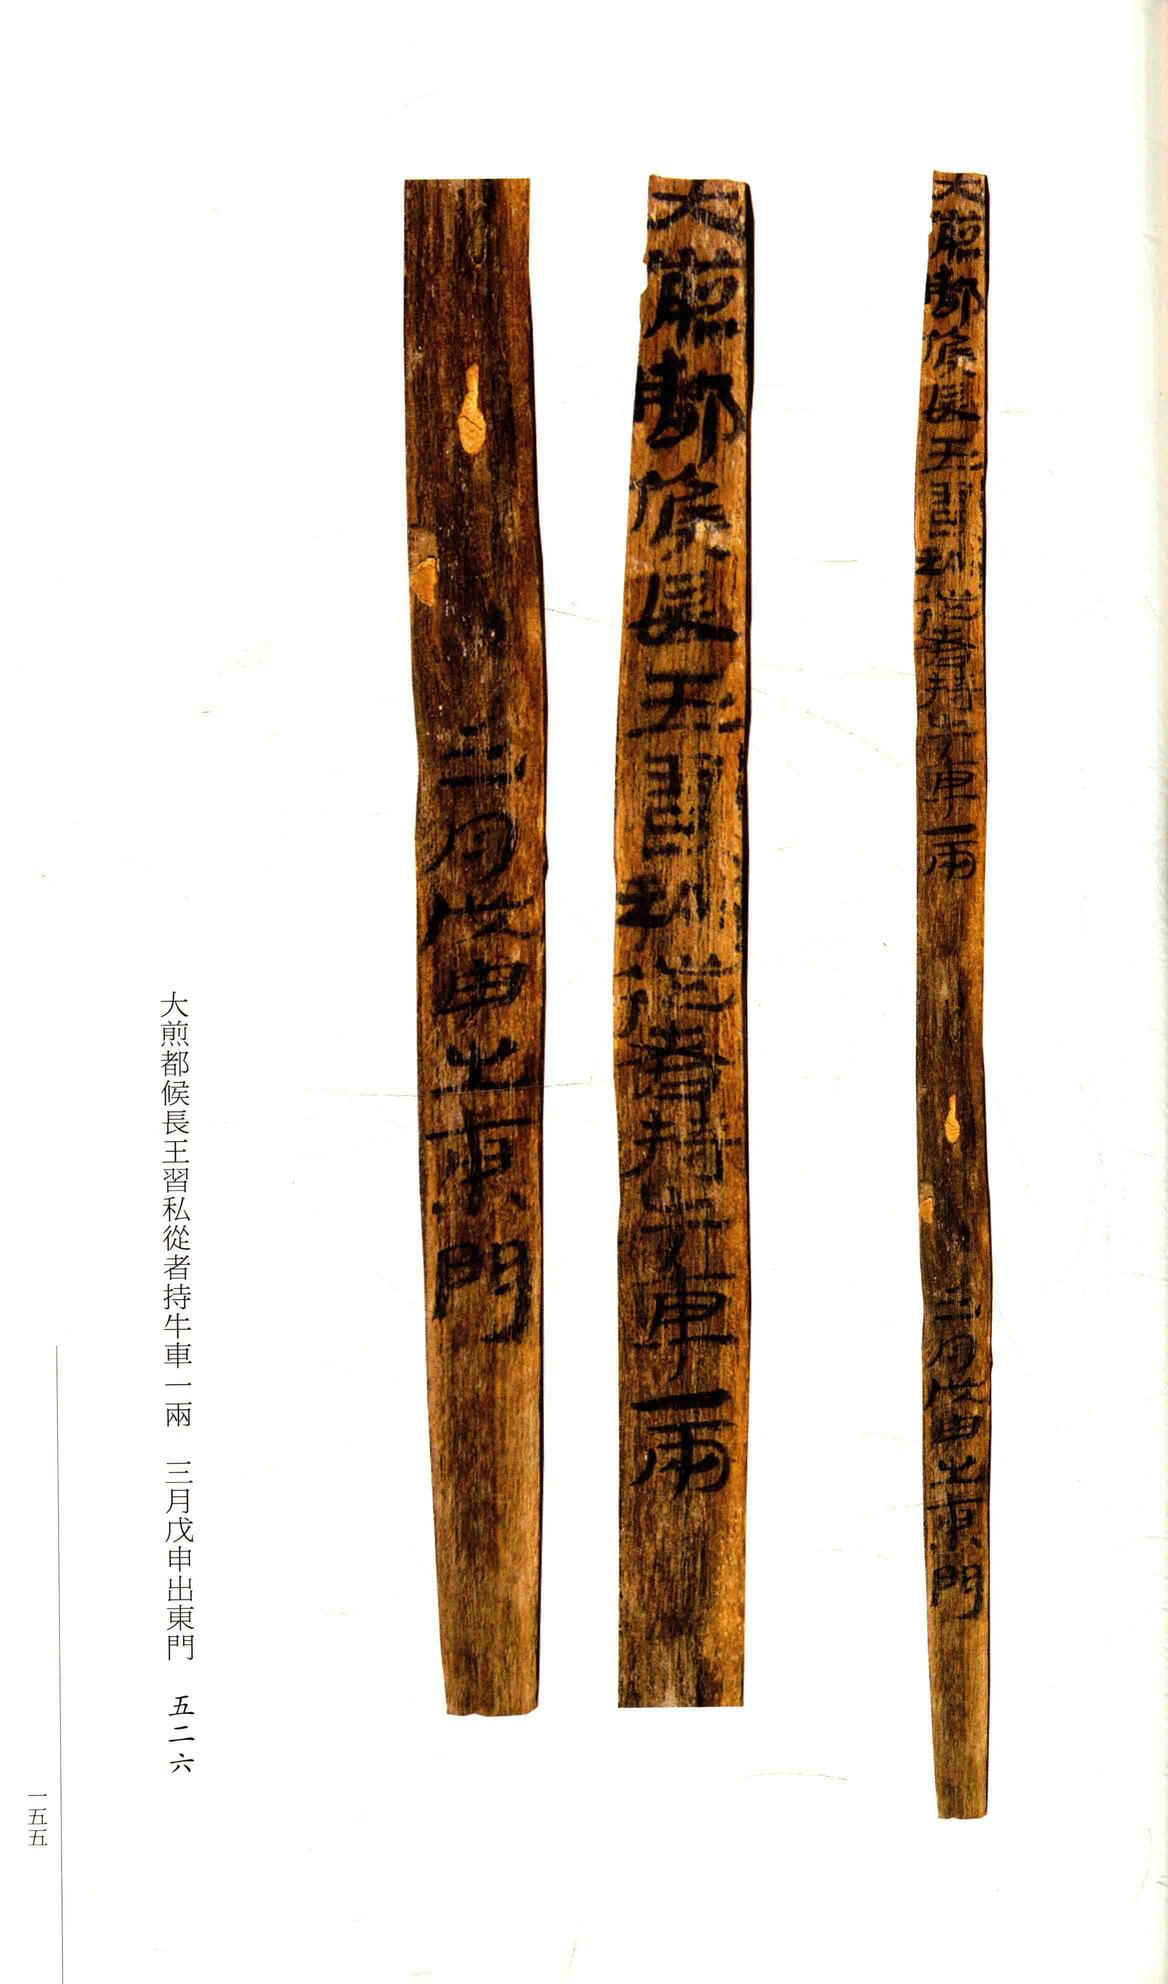 大煎都候長王習私從者持牛車一兩 三月戊申出東門
大煎都候長王習私從者持牛車一兩
三月戊申出東門
大煎都候長王習私從者持牛車一兩 三月戊申出東門 五二六
一五五